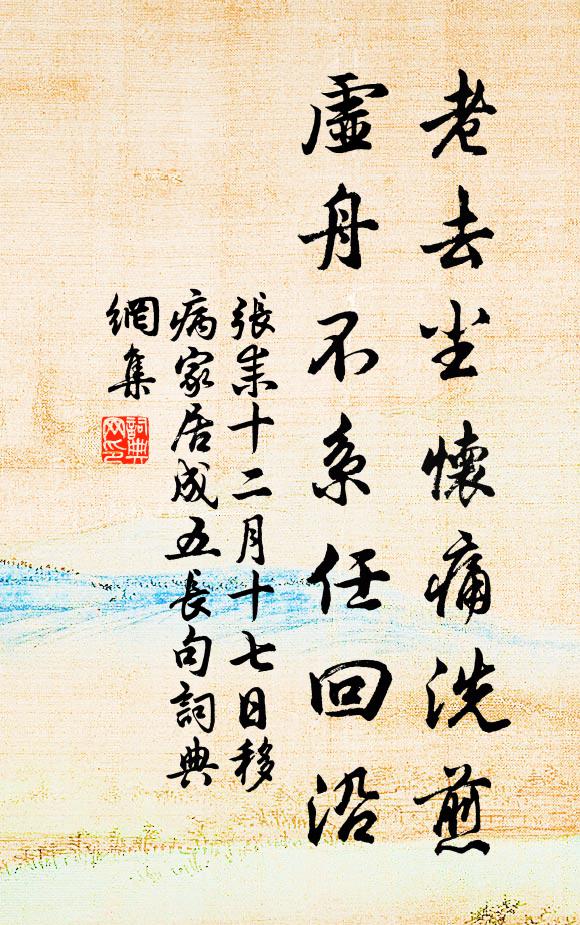 老去尘懷痛洗煎
虛舟不系任回沿
張耒十二月十七日移
病家居成五長句詞典
網集
詞典網印